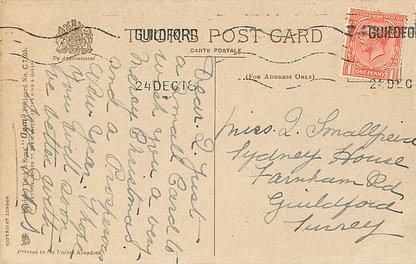 POST CARD
CARTE POSTALE
(FOR ADDRESS ONLY)
By Appointment
GUILDFORD
24 DEC 18
GUILDFORD
24 DEC
ONE PENNY
Dear L Just
a small Card to
wish you a very
Merry Christmas
and a Prosperous
New Year. Hope
you will soon
be better with
Miss. L Smallpeid
Sydney House
Farnham Rd
Guildford
Surrey
COPYRIGHT LONDON
Printed in the United Kingdom